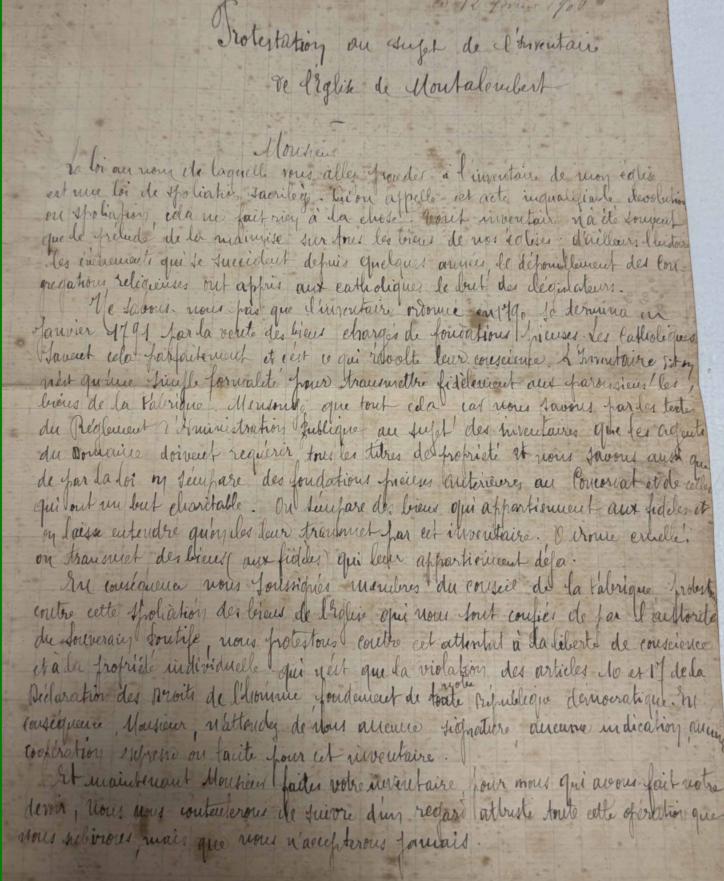 12 février 1906
Protestation au sujet de l'Inventaire
de l'Eglise de Montalembert
Monsieur
La loi au nom de laquelle vous allez procéder à l'inventaire de mon église
est une loi de spoliation sacrilège. Qu'on appelle cet acte inqualifiable dévolution
ou spoliation, cela ne fait rien à la chose. Tout inventaire n'a été souvent
que le prélude de la mainmise sur tous les biens de nos églises : d'ailleurs l'histoire
les évènements qui se succèdent depuis quelques années le dépouillement des Con-
grégations religieuses ont appris aux catholiques le but des législateurs.
Ne savons-nous pas que l'inventaire ordonné en 1790 se termina en
Janvier 1791 par la vente des biens chargés de fondations pieuses. Les Catholiques
savent cela parfaitement et c'est ce qui révolte leur conscience. L'Inventaire dit-on
n'est qu'une simple formalité pour transmettre fidèlement aux paroissiens les
biens de la Fabrique. Mensonge que tout cela car nous savons par les textes
du Réglement d'Administration Publique au sujet des inventaires que les agents
du Domaine doivent requérir tous les titres de propriété et nous savons aussi que
de par la loi on s'empare des fondations pieuses antérieures au Concordat et de celles
qui ont un but charitable. On s'empare des biens qui appartiennent aux fidèles et
on laisse entendre qu'on les leur transmet par cet inventaire. O ironie cruelle!
on transmet des biens (aux fidèles) qui leur appartiennent déjà.
En conséquence nous soussignés membres du conseil de la Fabrique protestons
contre cette spoliation des biens de l'Eglise qui nous sont confiés de par l'autorité
du Souverain Pontife, nous protestons contre cet attentat à la liberté de conscience
et à la propriété individuelle qui n'est que la violation des articles 10 et 17 de la
Déclaration des Droits de l'Homme fondement de toute notre République démocratique. En
conséquence, Monsieur, n'attendez de nous aucune signature, aucune indication, aucune
coopération expresse ou tacite pour cet inventaire.
Et maintenant Monsieur faites votre inventaire, pour nous qui avons fait notre
devoir, nous nous contenterons de suivre d'un regard attristé toute cette opération que
nous subirons, mais que nous n'accepterons jamais.